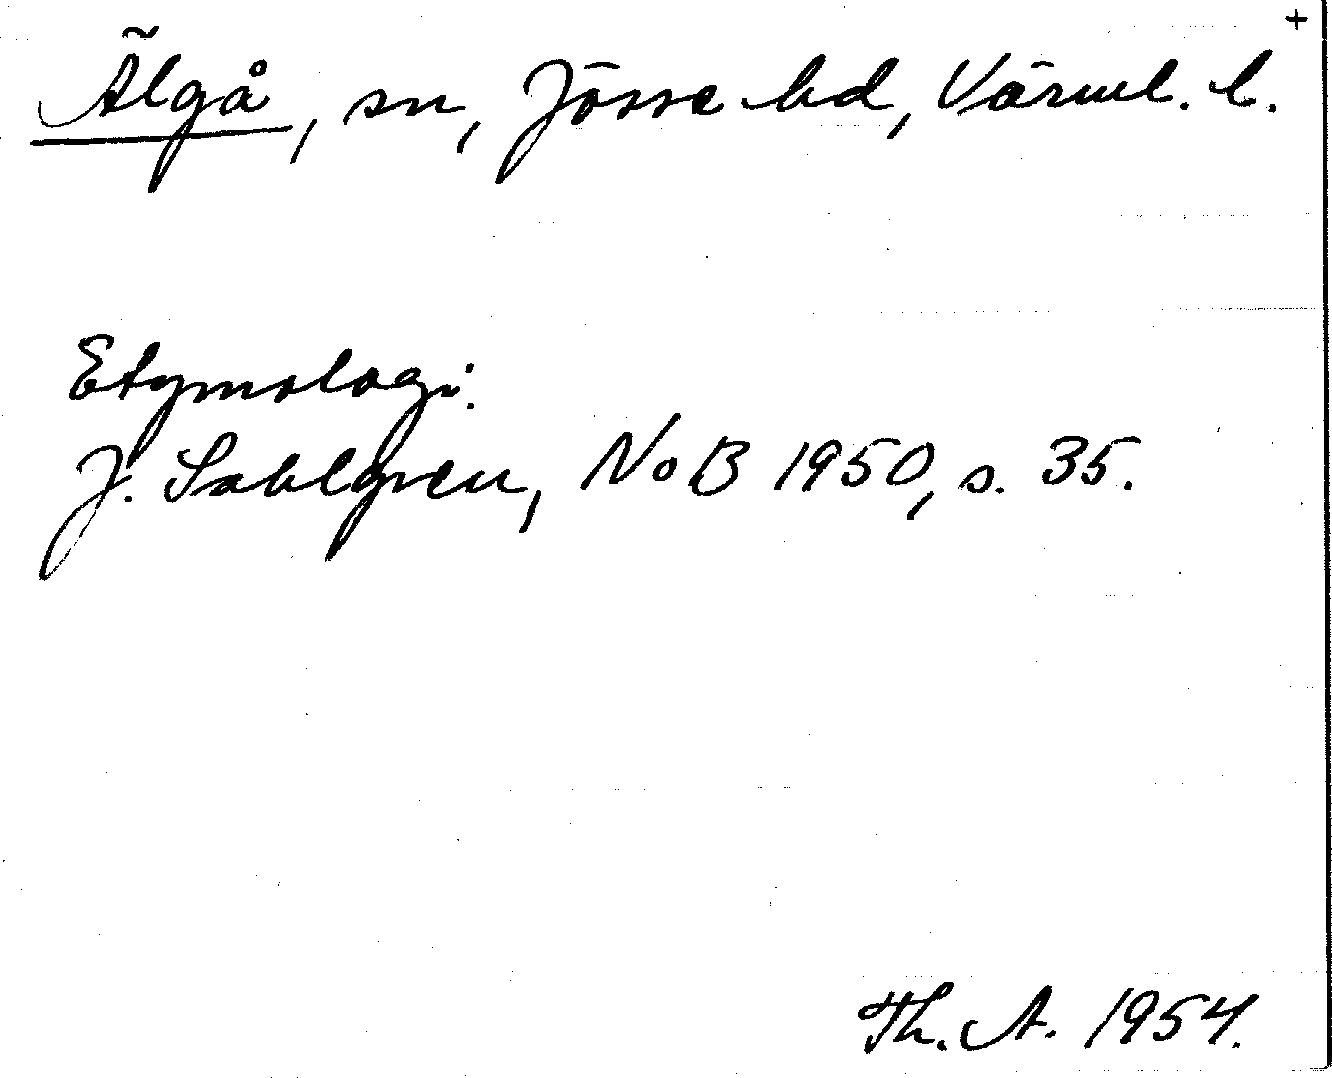 +
Älgå, sn, Jösse hd, Värml. l.
Etymologi:
J. Sahlgren, NoB 1950, s. 35.
Th. A. 1954.